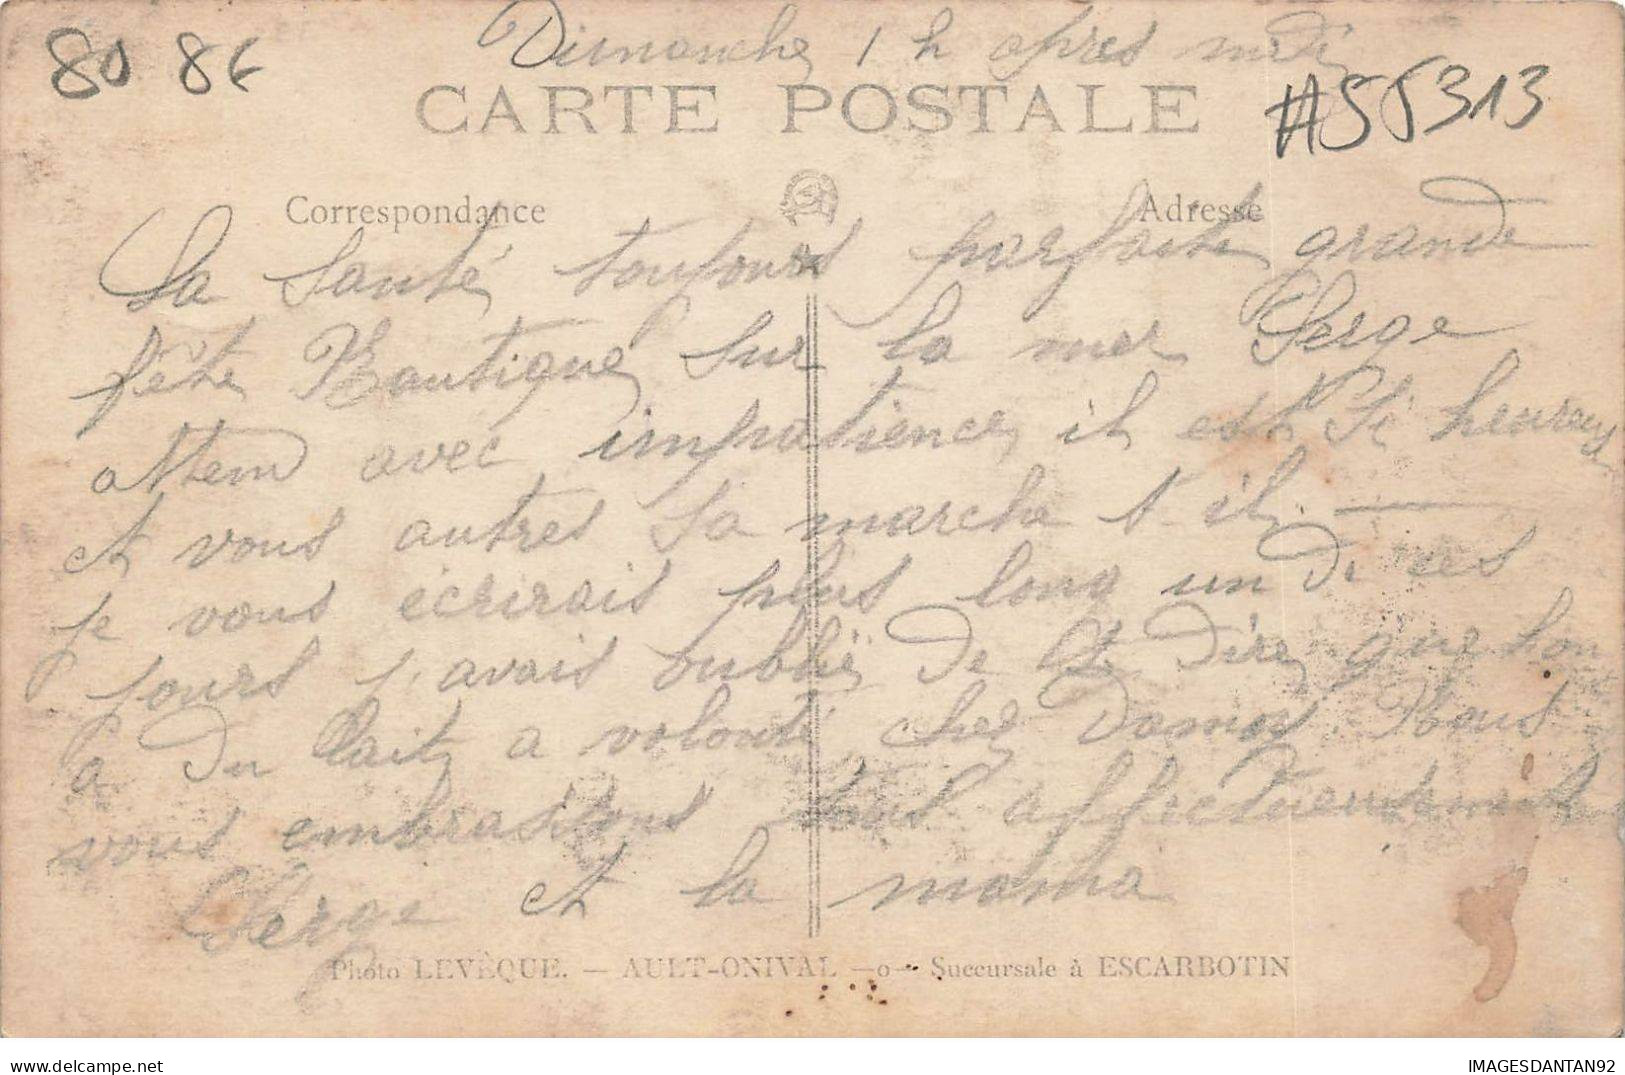 Dimanche 1 h apres midi
80 8€
CARTE POSTALE
#55313
Correspondance
Adresse
La Santé toujours parfaite grande
fête Nautique Sur la mer Serge
attend avec impatience, il est Si heureux
et vous autres Sa marche t-il. ———
je vous écrirais plus long un di ces
jours j'avais oublié de te dire que l'on
a du lait a volonté chez Damoy Nous
vous embrassons tous affectueusement
Serge et la mama
Photo LEVÊQUE. — AULT-ONIVAL —o— Succursale à ESCARBOTIN
IMAGESDANTAN92